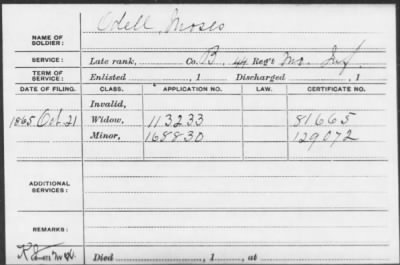 NAME OF SOLDIER: Odell, Moses
SERVICE: Late rank, Co. B, 44 Reg't Mo. Inf
TERM OF SERVICE: Enlisted , 1 Discharged , 1
DATE OF FILING. CLASS. APPLICATION NO. LAW. CERTIFICATE NO.
Invalid,
1865 Oct. 21 Widow, 113233 81665
Minor, 168830 129072
ADDITIONAL SERVICES:
REMARKS:
Died , 1 , at